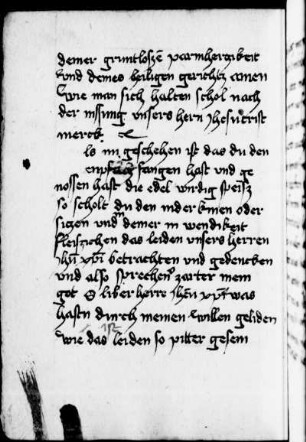 deiner gruntloszen parmherczikeit
und deines heiligen gerichtz amen
Wie man sich halten schol nach
der nissung unsers hern Jhesu crist
merck
ls nu geschehen ist das du den
enpfangen hast und ge
nossen hast die edel wirdig speisz
so scholt du den nider knien oder
siczen und in deiner in wendikeit
fleissichen das leiden unsers herren
jhu xpi betrachten und gedencken
und also sprechen zarter mein
got O liber herre jhu xpe was
hastu durch meinen willen geliden
wie ist das leiden so pitter gesein